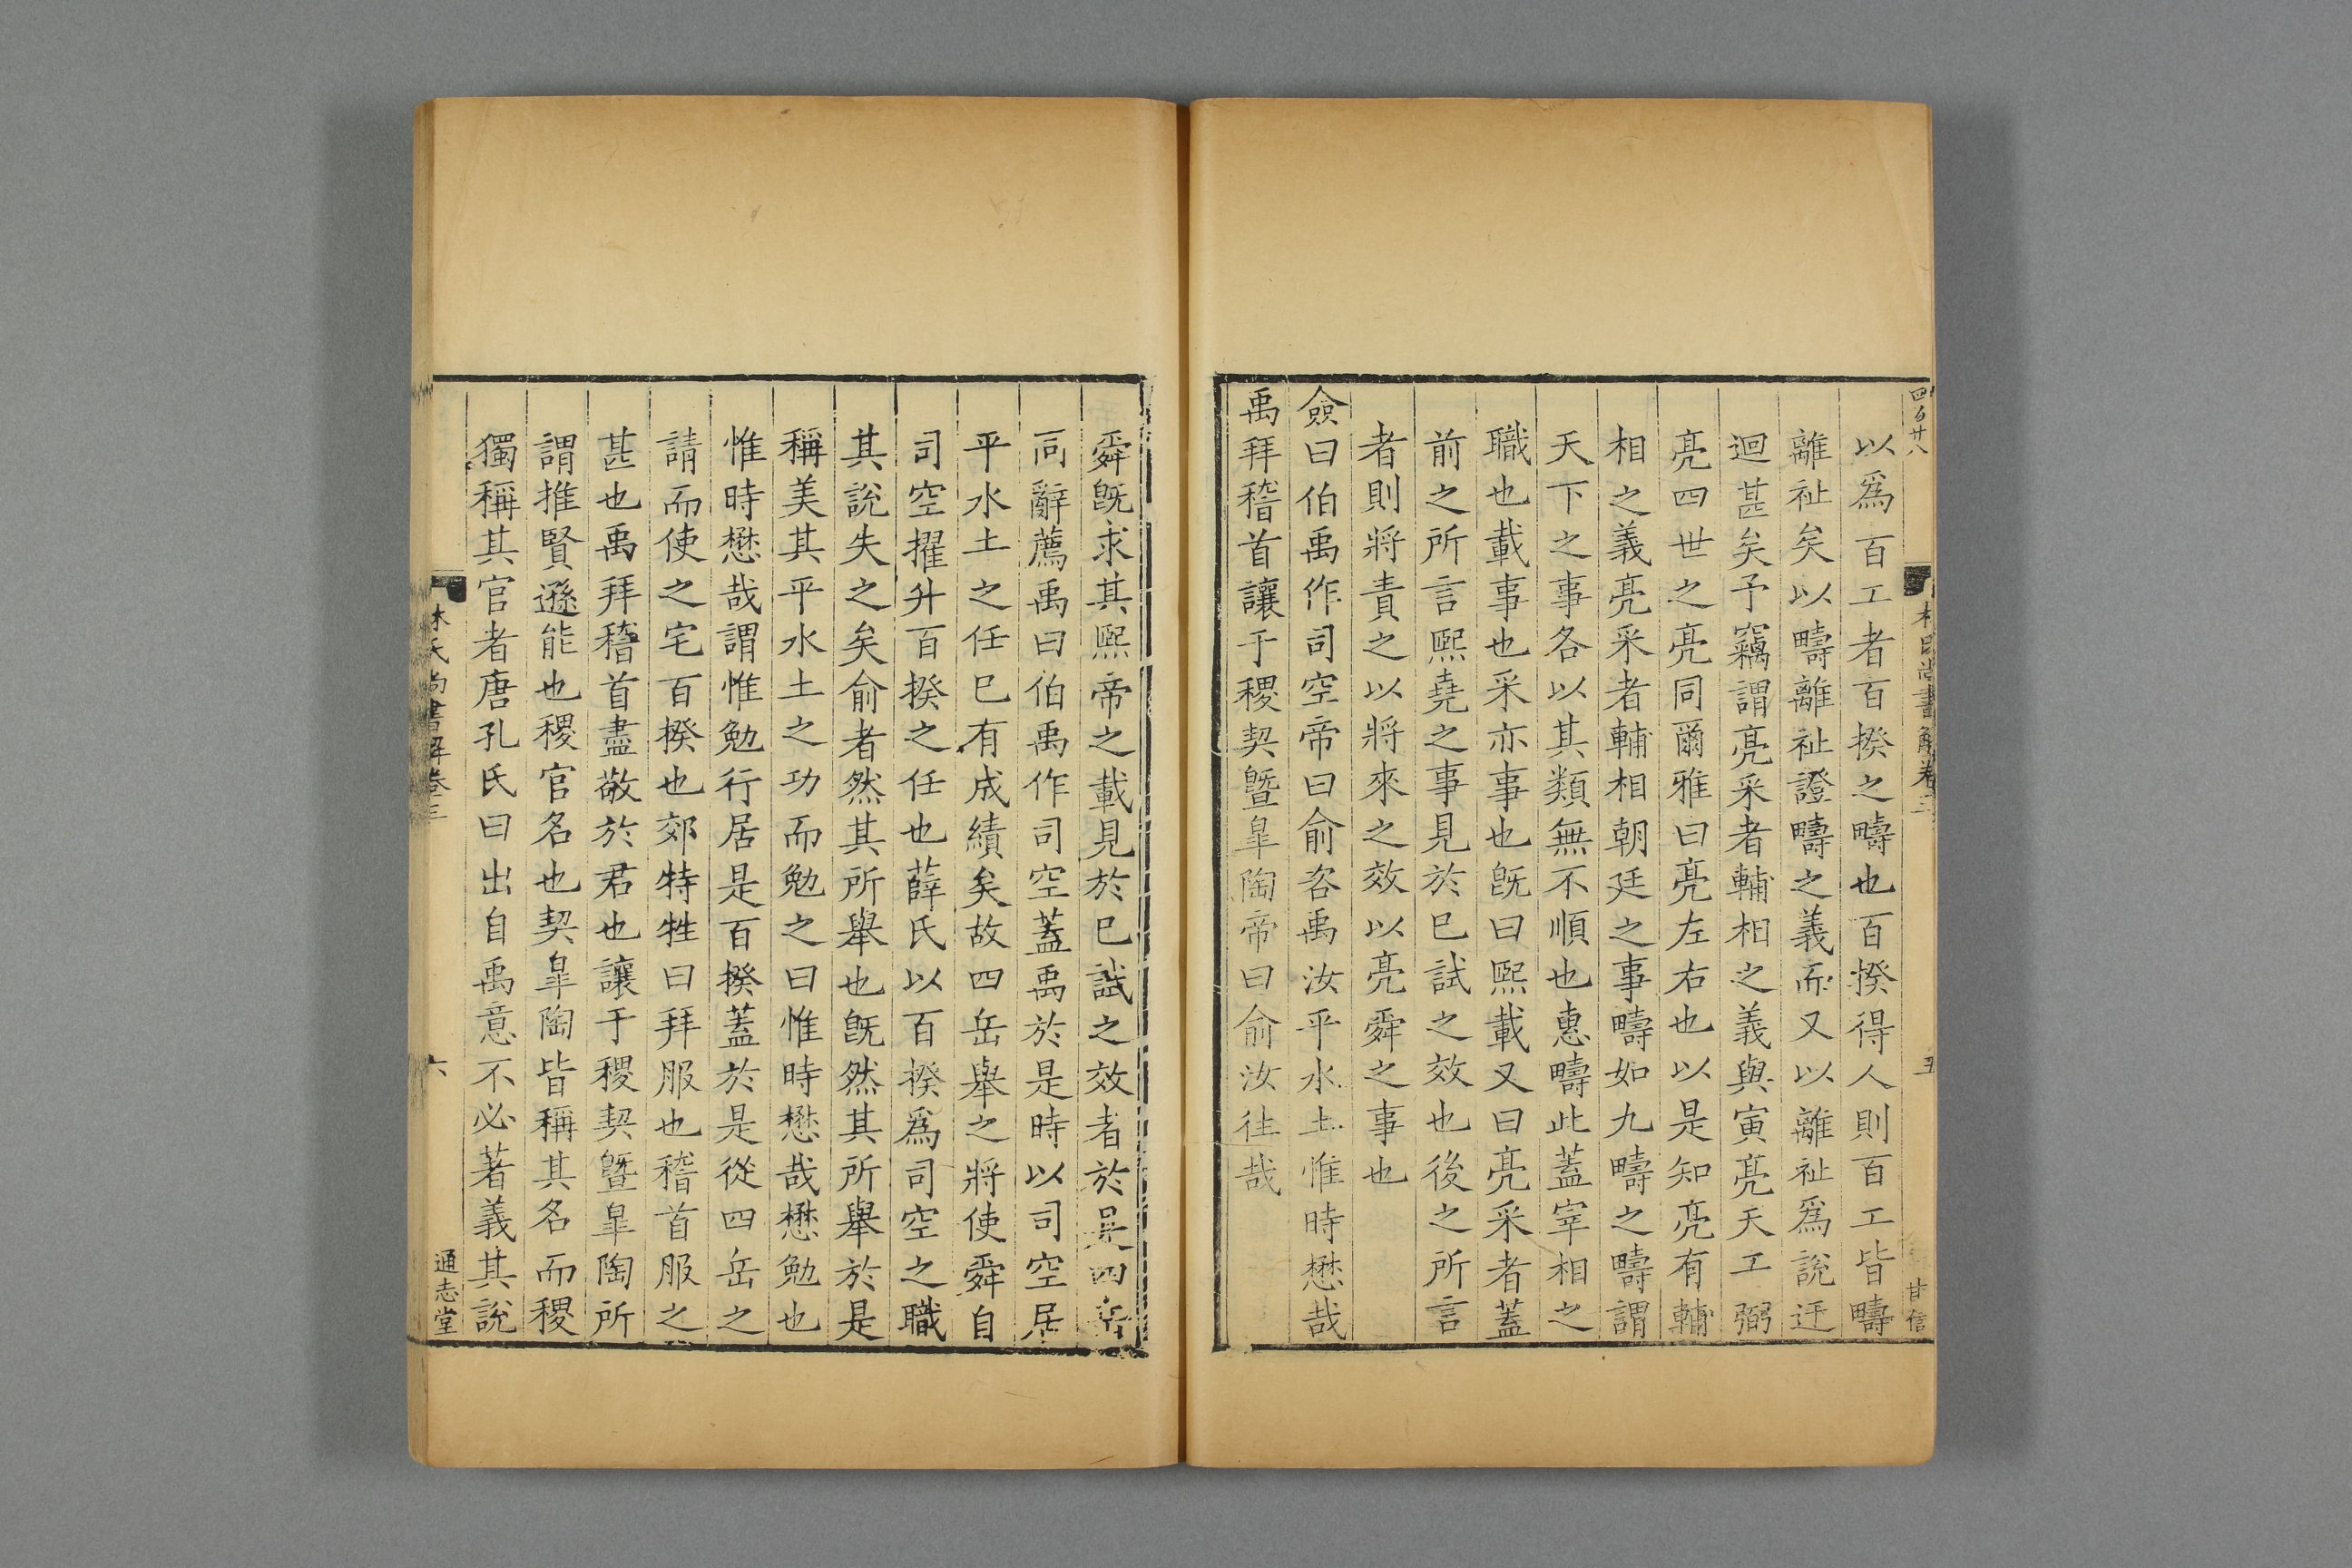 四百廿八
以爲百工者百揆之疇也百揆得人則百工皆疇
離祉矣以疇離祉證疇之義而又以離祉爲說迂
迴甚矣予竊謂亮采者輔相之義與寅亮天工弼
亮四世之亮同爾雅曰亮左右也以是知亮有輔
相之義亮采者輔相朝廷之事疇如九疇之疇謂
天下之事各以其類無不順也惠疇此蓋宰相之
職也載事也采亦事也旣曰熙載又曰亮采者蓋
前之所言熙堯之事見於巳試之效也後之所言
者則將責之以將來之效以亮舜之事也
僉曰伯禹作司空帝曰俞咨禹汝平水土惟時懋哉
禹拜稽首讓于稷契曁皐陶帝曰俞汝往哉
林氏尚書解卷三
五
甘信
舜旣求其熙帝之載見於巳試之效者於是四岳
同辭薦禹曰伯禹作司空蓋禹於是時以司空居
平水土之任巳有成績矣故四岳舉之將使舜自
司空擢升百揆之任也薛氏以百揆爲司空之職
其說失之矣俞者然其所舉也旣然其所舉於是
稱美其平水土之功而勉之曰惟時懋哉懋勉也
惟時懋哉謂惟勉行居是百揆蓋於是從四岳之
請而使之宅百揆也郊特牲曰拜服也稽首服之
甚也禹拜稽首盡敬於君也讓于稷契曁皐陶所
謂推賢遜能也稷官名也契皐陶皆稱其名而稷
獨稱其官者唐孔氏曰出自禹意不必著義其說
林氏尚書解卷三
六
通志堂